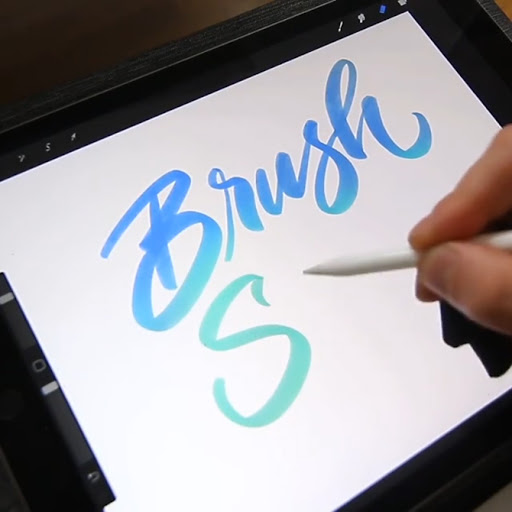 Brush
S